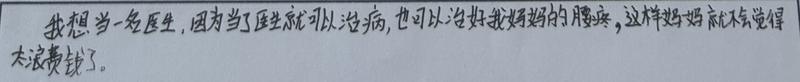 我想当一名医生,因为当了医生就可以治病,也可以治好我妈妈的腰疼,这样妈妈就不会觉得
太浪费钱了。